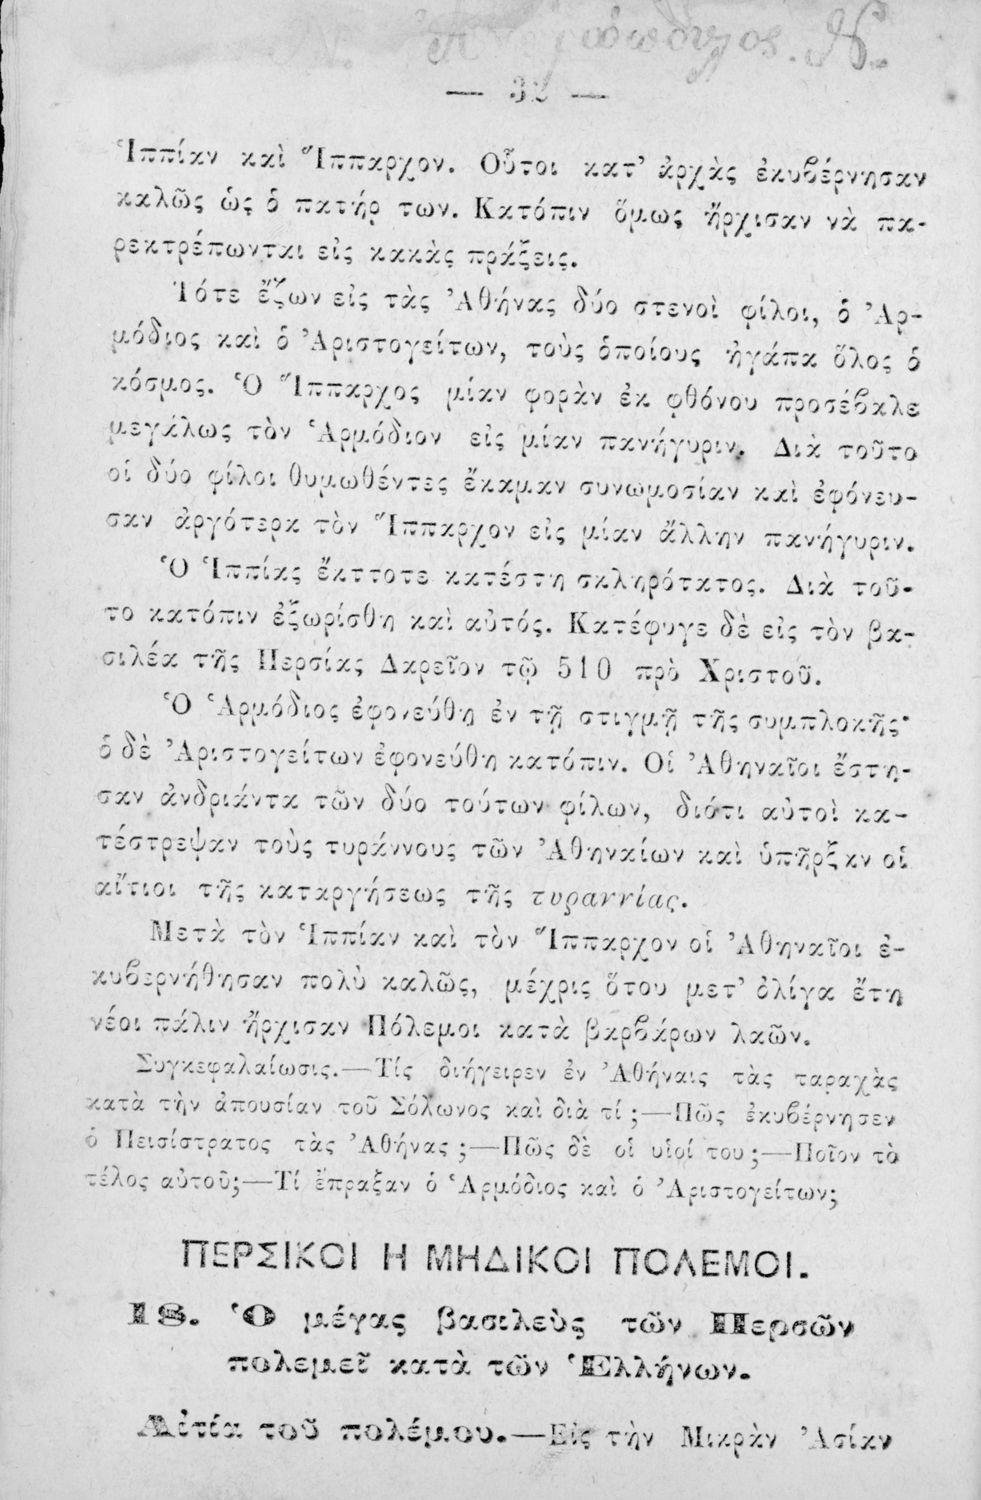 — 32 —
Ἱππίαν καὶ Ἵππαρχον. Οὗτοι κατ' ἀρχὰς ἐκυβέρνησαν
καλῶς ὡς ὁ πατήρ των. Κατόπιν ὅμως ἤρχισαν νὰ πα-
ρεκτρέπωνται εἰς κακὰς πράξεις.
Τότε ἔζων εἰς τὰς Ἀθήνας δύο στενοὶ φίλοι, ὁ Ἁρ-
μόδιος καὶ ὁ Ἀριστογείτων, τοὺς ὁποίους ἠγάπα ὅλος ὁ
κόσμος. Ὁ Ἵππαρχος μίαν φορὰν ἐκ φθόνου προσέβαλε
μεγάλως τὸν Ἁρμόδιον εἰς μίαν πανήγυριν. Διὰ τοῦτο
οἱ δύο φίλοι θυμωθέντες ἔκαμαν συνωμοσίαν καὶ ἐφόνευ-
σαν ἀργότερα τὸν Ἵππαρχον εἰς μίαν ἄλλην πανήγυριν.
Ὁ Ἱππίας ἔκτοτε κατέστη σκληρότατος. Διὰ τοῦ-
το κατόπιν ἐξωρίσθη καὶ αὐτός. Κατέφυγε δὲ εἰς τὸν βα-
σιλέα τῆς Περσίας Δαρεῖον τῷ 510 πρὸ Χριστοῦ.
Ὁ Ἁρμόδιος ἐφονεύθη ἐν τῇ στιγμῇ τῆς συμπλοκῆς·
ὁ δὲ Ἀριστογείτων ἐφονεύθη κατόπιν. Οἱ Ἀθηναῖοι ἔστη-
σαν ἀνδριάντα τῶν δύο τούτων φίλων, διότι αὐτοὶ κα-
τέστρεψαν τοὺς τυράννους τῶν Ἀθηναίων καὶ ὑπῆρξαν οἱ
αἴτιοι τῆς καταργήσεως τῆς τυραννίας.
Μετὰ τὸν Ἱππίαν καὶ τὸν Ἵππαρχον οἱ Ἀθηναῖοι ἐ-
κυβερνήθησαν πολὺ καλῶς, μέχρις ὅτου μετ' ὀλίγα ἔτη
νέοι πάλιν ἤρχισαν Πόλεμοι κατὰ βαρβάρων λαῶν.
Συγκεφαλαίωσις.—Τίς διήγειρεν ἐν Ἀθήναις τὰς ταραχὰς
κατὰ τὴν ἀπουσίαν τοῦ Σόλωνος καὶ διὰ τί;—Πῶς ἐκυβέρνησεν
ὁ Πεισίστρατος τὰς Ἀθήνας;—Πῶς δὲ οἱ υἱοί του;—Ποῖον τὸ
τέλος αὐτοῦ;—Τί ἔπραξαν ὁ Ἁρμόδιος καὶ ὁ Ἀριστογείτων;
ΠΕΡΣΙΚΟΙ Η ΜΗΔΙΚΟΙ ΠΟΛΕΜΟΙ.
18. Ὁ μέγας βασιλεὺς τῶν Περσῶν
πολεμεῖ κατὰ τῶν Ἑλλήνων.
Αἰτία τοῦ πολέμου.—Εἰς τὴν Μικρὰν Ἀσίαν